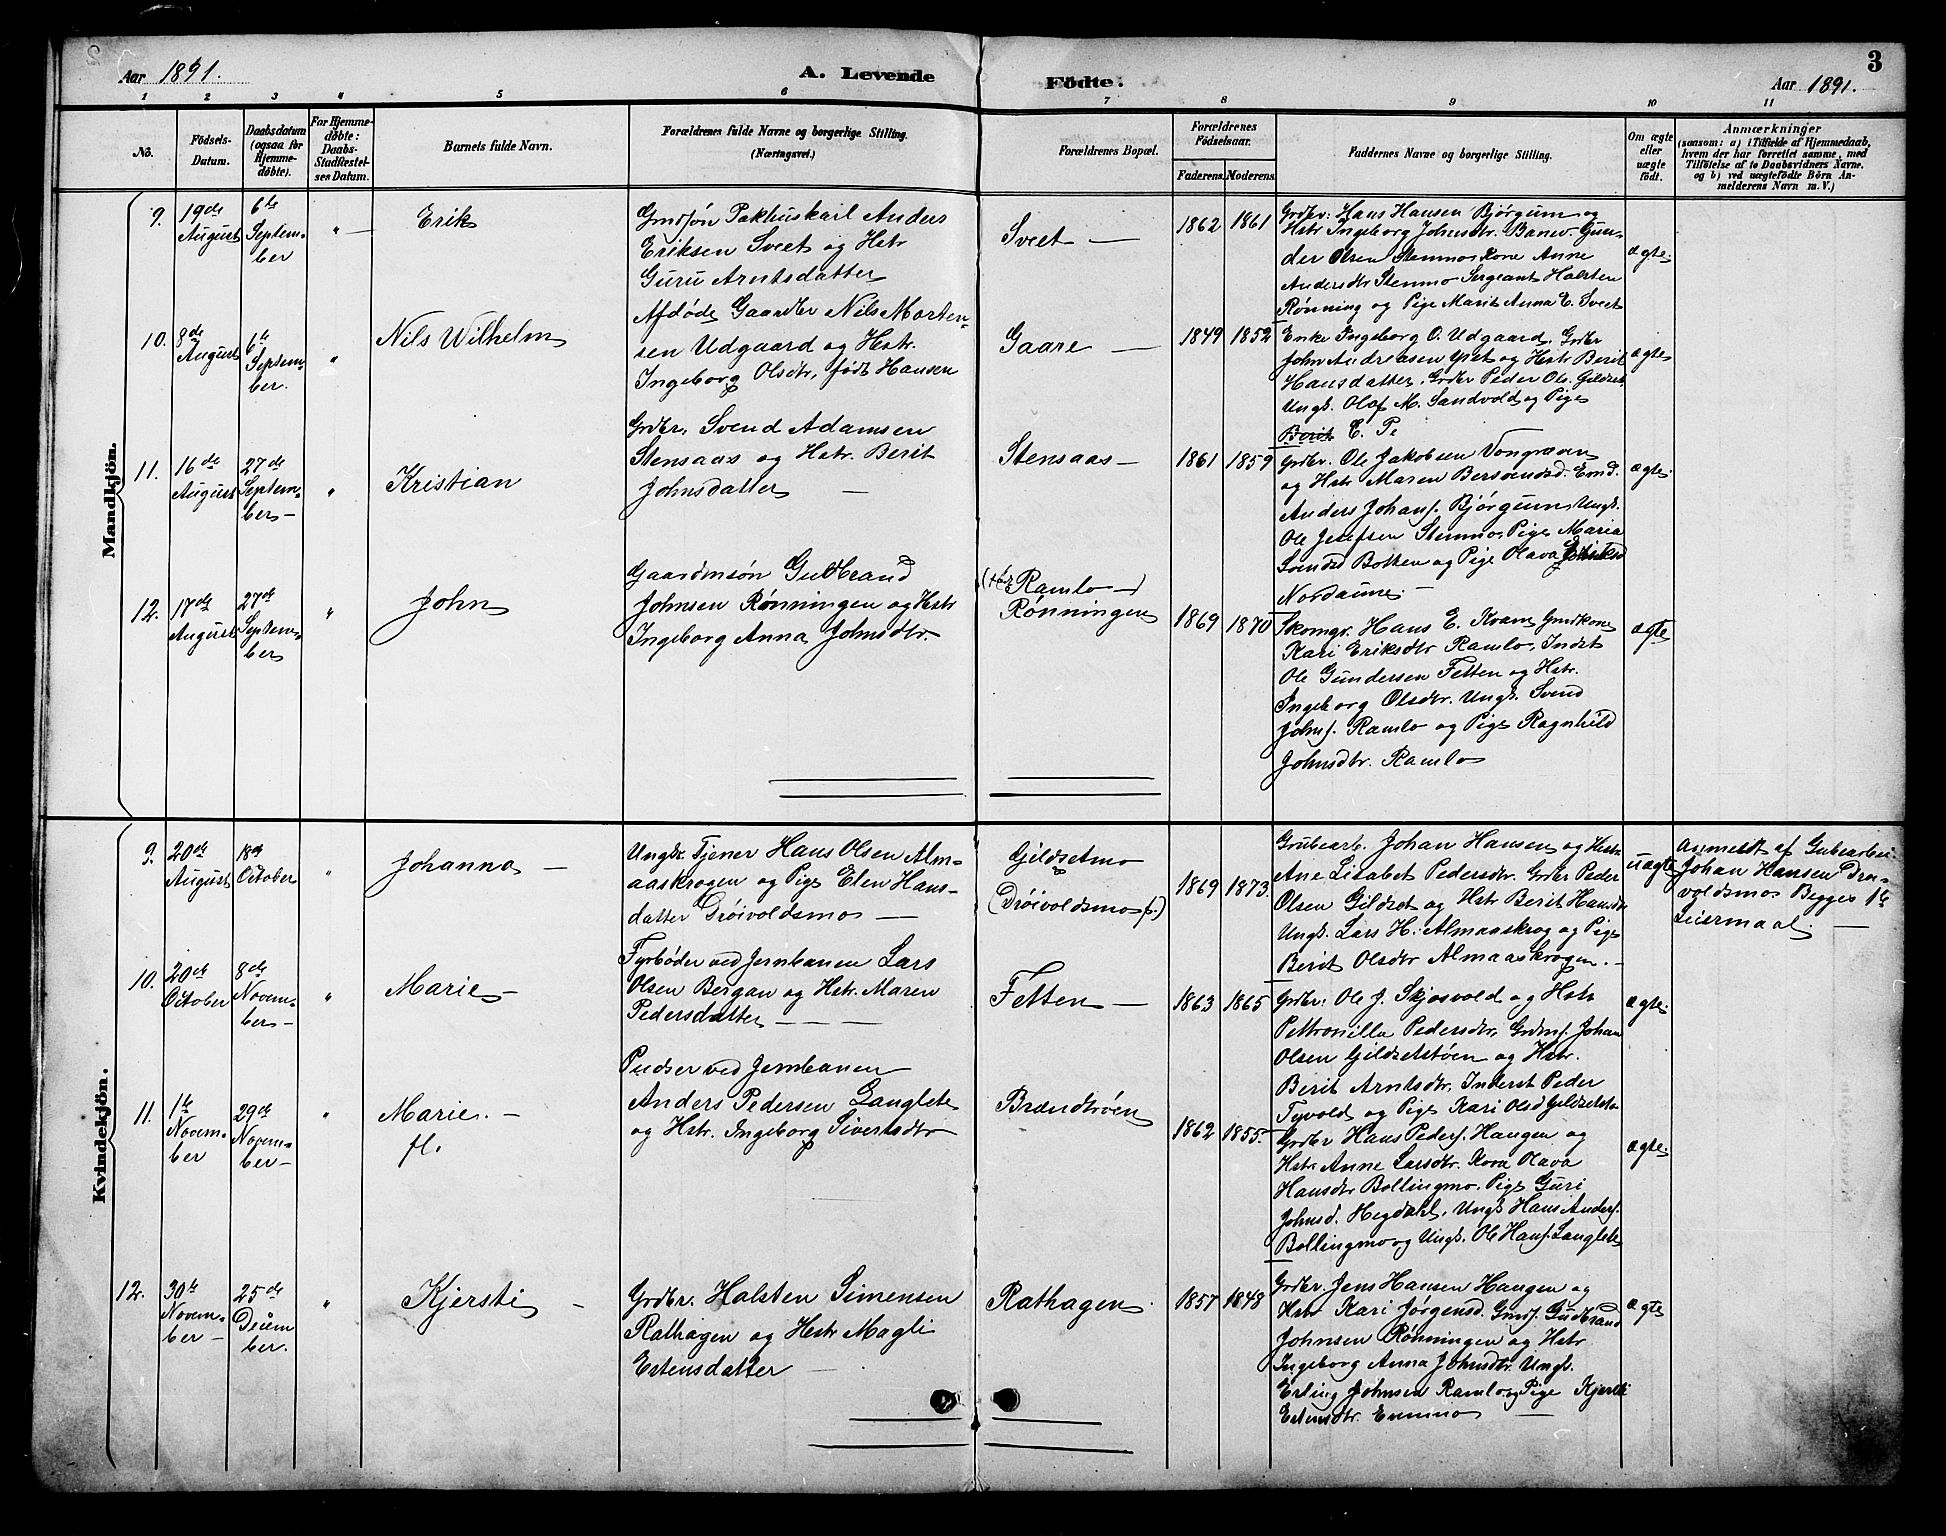 3
Aar 1891.
A. Levende Födte.
Aar 1891.
1 2 3 4 5 6 7 8 9 10 11
No.
Födsels-
Datum.
Daabsdatum
(ogsaa for
Hjemme-
døbte).
For Hjemme-
døbte:
Daabs-
Stadfæstel-
ses Datum.
Barnets fulde Navn.
Forældrenes fulde Navne og borgerlige Stilling.
(Næringsvei.)
Forældrenes Bopæl.
Forældrenes
Fødselsaar.
Faderens. Moderens.
Faddernes Navne og borgerlige Stilling.
Om ægte
eller
uægte
født.
Anmærkninger
(saasom: a) i Tilfælde af Hjemmedaab,
hvem der har forrettet samme, med
Tilføielse af to Daabsvidners Navne,
og b) ved uægtefødte Børn An-
melderens Navn m. V.)
Mandkjön.
9.
19de
August
6te
Septem-
ber
"
Erik
Gmdsøn Pakhuskarl Anders
Eriksen Sveet og Hstr
Guru Arntsdatter
Sveet —
1862 1861
Grdbr: Hans Hansen Bjørgum og
Hstr Ingeborg Johnsdtr. Banev. Gun-
der Olsen Stenmo Kone Anne
Andersdtr Stenmo Sergeant Halsten
Rønning og Pige Marit Anna E. Sveet
ægte.
10.
8de
August
6te
Septem-
ber.
"
Nils Wilhelm
Afdøde Gaardbr Nils Morten-
sen Udgaard og Hstr.
Ingeborg Olsdtr, født Hansen
Gaare —
1849 1852
Enke Ingeborg O. Udgaard. Grdbr
John Andreasen Yset og Hstr Berit
Hansdatter, Grdbr Peder Ols. Gildset
Ungk. Olaf M. Sandvold og Pige
Berit E. P.
ægte
11.
16de
August
27de
Septem-
ber —
"
Kristian
Grdbr. Svend Adamsen
Stensaas og Hstr. Berit
Johnsdatter —
Stensaas —
1861 1859
Grdbr. Ole Jakobsen Vongraven
og Hstr Maren Bersvendsd. Emd.
Anders Johans. Bjørgum, Ungk.
Ole Josefsen Stenmo, Pige Maria
Svendsd Botten og Pige Olava Eriksd
Nordaune. —
ægte
12.
17de
August
27de
Septem-
ber
"
John
Gaardmsøn Gudbrand
Johnsen Rønningen og Hstr
Ingeborg Anna Johnsdtr.
Ramlo —)
Rønningen
1869 1870
Skomgr. Hans E. Kvam Gmdkone
Kari Eriksdtr Ramlo, Indst
Ole Gundersen Fetten og Hstr.
Ingeborg Olsdtr. Ungk. Svend
Johns. Ramlo og Pige Ragnhild
Johnsdtr. Ramlo
ægte
Kvindekjön.
9.
20de
August
18de
October
"
Johanna —
Ungk. Tjener Hans Olsen Alm-
aaskrogen og Pige Elen Hans-
datter Drøivoldsmo —
Gildsetmo
(Drøivoldsmo f.)
1869 1873.
Grubearb. Johan Hansen og Hstr
Ane Lisabet Pedersdtr. Grdbr Peder
Olsen Gildset og Hstr Berit Hansdtr
Ungk. Lars H. Almaaskrog og Pige
Berit Olsdtr Almaaskrogen. —
uægte
Anmeldt af Grubearbei.
Johan Hansen Drøi-
voldsmo. Begges 1te
Leiermaal. —
10.
20de
October
8de
Novem-
ber —
"
Marie —
Fyrbøder ved Jernbanen Lars
Olsen Bergan og Hstr. Maren
Pedersdatter — — —
Fetten —
1863 1865
Grdbr: Ole J. Skjosvold og Hstr
Petronilla Pedersdtr, Grdms. Johan
Olsen Gildsetstøen og Hstr.
Berit Arntsdtr. Inderst Peder
Tyvold og Pige Kari Olsd Gildsetstø
ægte.
11.
1te
Novem-
ber
29de
Novem-
ber —
"
Marie. —
fl.
Pudser ved Jernbanen
Anders Pedersen Langlete
og Hstr. Ingeborg Sivertsdtr
Brændtrøen
1862 1855.
Grdbr Hans Peders. Haugen og
Hstr Anne Larsdtr. Kona Olava
Hansdtr Bollingmo. Pige Guri
Johnsd. Hegdahl, Ungk Hans Anders.
Bollingmo og Ungk. Ole Hans. Langlete
ægte.
12.
30te
Novem-
ber —
25de
Decem
ber.
"
Kjersti —
Grdbr. Halsten Simensen
Rathagen og Hstr Magli
Estensdatter —
Rathagen.
1857 1848
Grdbr. Jens Hansen Haugen og
Hstr Kari Jørgensd. Gmds. Gudbrand
Johnsen Rønningen og Hstr
Ingeborg Anna Johnsdtr. Ungk.
Erling Johnsen Ramlo og Pige Kjersti
Estensdtr. Evenmo —
ægte